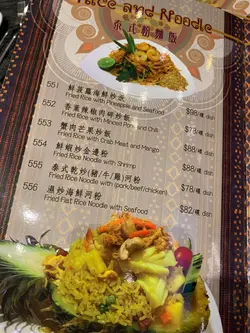 Rice and Noodle
泰式粉麵飯
551 鮮菠蘿海鮮炒飯
Fried Rice with Pineapple and Seafood $98/碟 dish
552 香葉辣椒肉碎炒飯
Fried Rice with Minced Pork and Chili $78/碟 dish
553 蟹肉芒果炒飯
Fried Rice with Crab Meat and Mango $88/碟 dish
554 鮮蝦炒金邊粉
Fried Rice Noodle with Shrimp $88/碟 dish
555 泰式乾炒(豬/牛/雞)河粉
Fried Rice Noodle with (pork/beef/chicken) $78/碟 dish
556 濕炒海鮮河粉
Fried Flat Rice Noodle with Seafood $82/碟 dish